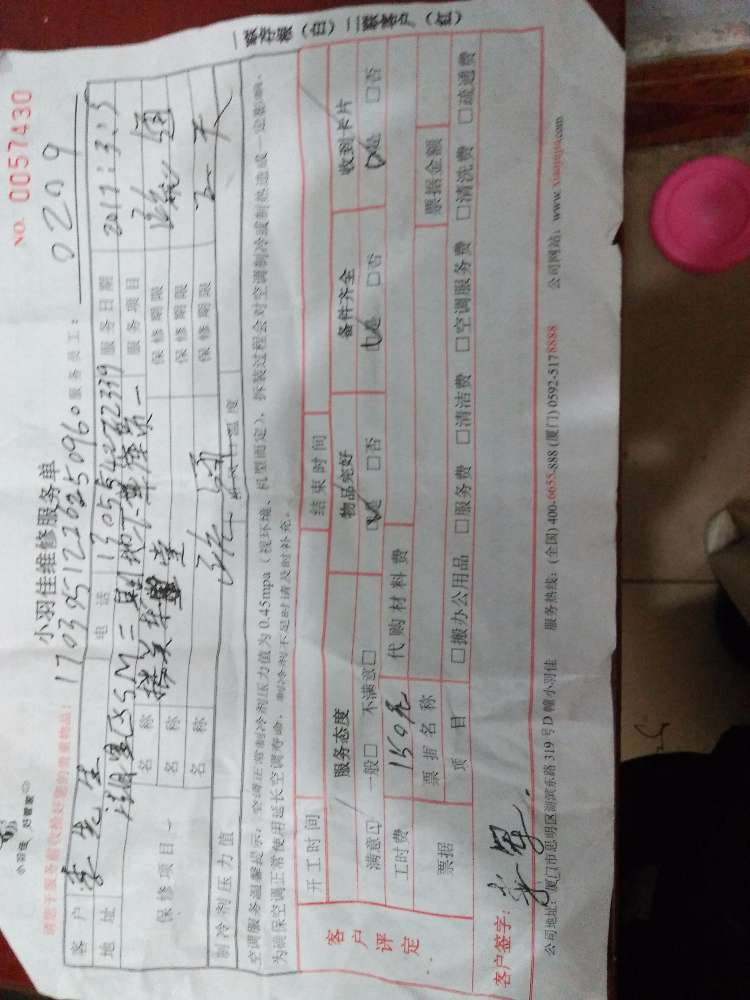 小羽佳 好管家
小羽佳维修服务单
NO. 0057430
请您于服务前收拾好您的贵重物品:
170395122625096
服务员工:
0209
客户 李先生 电话 130554272339 服务日期 2017.3.15
地址 湖里区SM三期地下 服务项目 疏通
保修项目 名称 保修期限
名称 保修期限
名称 保修期限
制冷剂压力值 温度
空调服务温馨提示:空调正常制冷剂压力值为0.45mpa(视环境、机型而定),拆装过程会对空调制冷或制热造成一定影响,
为确保空调正常使用延长空调寿命,制冷剂不足时请及时补充。
开工时间 结束时间
客户评定 服务态度 物品完好 备件齐全 收到卡片
满意 一般□ 不满意□ □是 □否 □是 □否 □是 □否
工时费 150元 代购材料费
票据 票据名称 票据金额
项目 □搬办公用品 □服务费 □清洁费 □空调服务费 □清洗费 □疏通费
客户签字:
公司地址:厦门市思明区湖滨东路319号D幢小羽佳 服务热线:(全国)400-6655-888 (厦门)0592-5178888 公司网站:www.xiaoyujia.com
一联存根(白)二联客户(红)